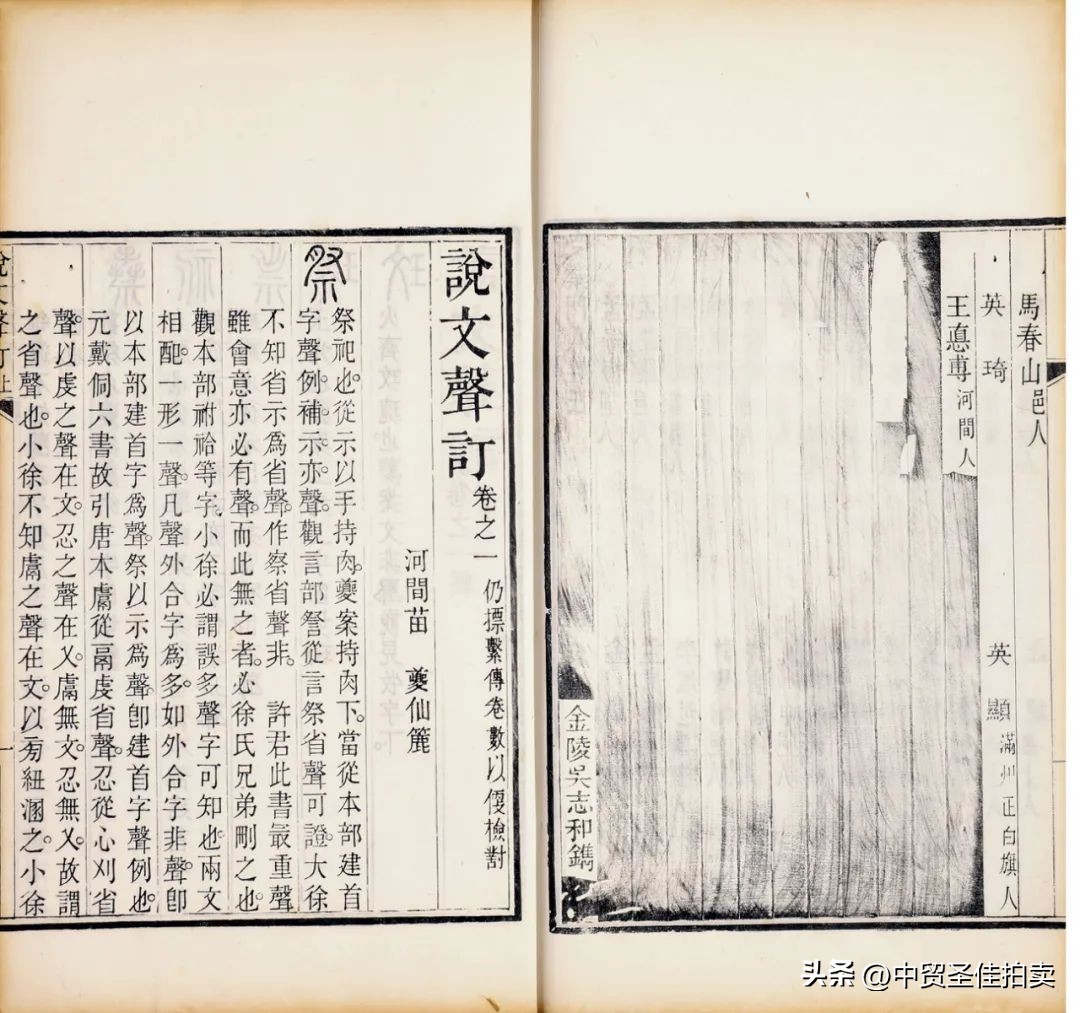 馬春山邑人
英琦 英顯滿州正白旗人
王意專河間人
金陵吳志和鐫
說文聲訂卷之一 仍摽繫傳卷數以偄檢對
河間苗 夔仙簏
祭 祭祀也從示以手持肉。夔案持肉下。當從本部建首
字聲例。補示亦聲。觀言部詧從言祭省聲可證。大徐
不知省示爲省聲。作察省聲非。 許君此書最重聲
雖會意亦必有聲。而此無之者。必徐氏兄弟刪之也。
觀本部祔祫等字。小徐必謂誤多聲字可知也。兩文
相配一形一聲。凡聲外合字爲多。如外合字非聲。卽
以本部建首字爲聲。祭以示爲聲。卽建首字聲例也。
元戴侗六書故引唐本鬳從鬲虔省聲。忍從心刈省
聲。以虔之聲在文。忍之聲在乂。鬳無文。忍無乂。故謂
之省聲也。小徐不知鬳之聲在文。以旁紐溷之。小徐
說文聲訂上 一
头条 @中贸圣佳拍卖